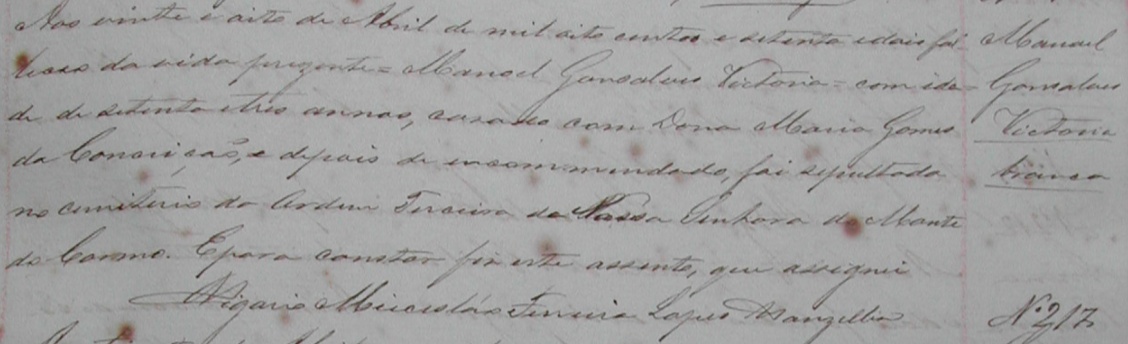 Aos vinte e oito de Abril de mil oito centos e setenta e dois fal-
leceo da vida prezente = Manoel Gonsalves Victoria = com ida-
de de setenta e tres annos, cazado com Dona Maria Gomes
da Conceição, e depois de encommendado, foi sepultado
no cemiterio da Ordem Terceira de Nossa Senhora do Monte
do Carmo. E para constar fiz este assento, que assignei
O Vigario Miceslào Ferreira Lopes Wanzeller
Manoel
Gonsalves
Victoria
branco
N.º 217